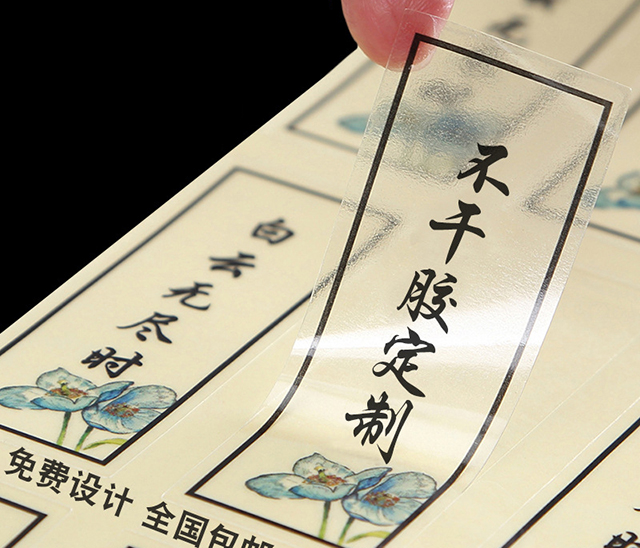 不干胶定制
白云无尽时
免费设计 全国包邮